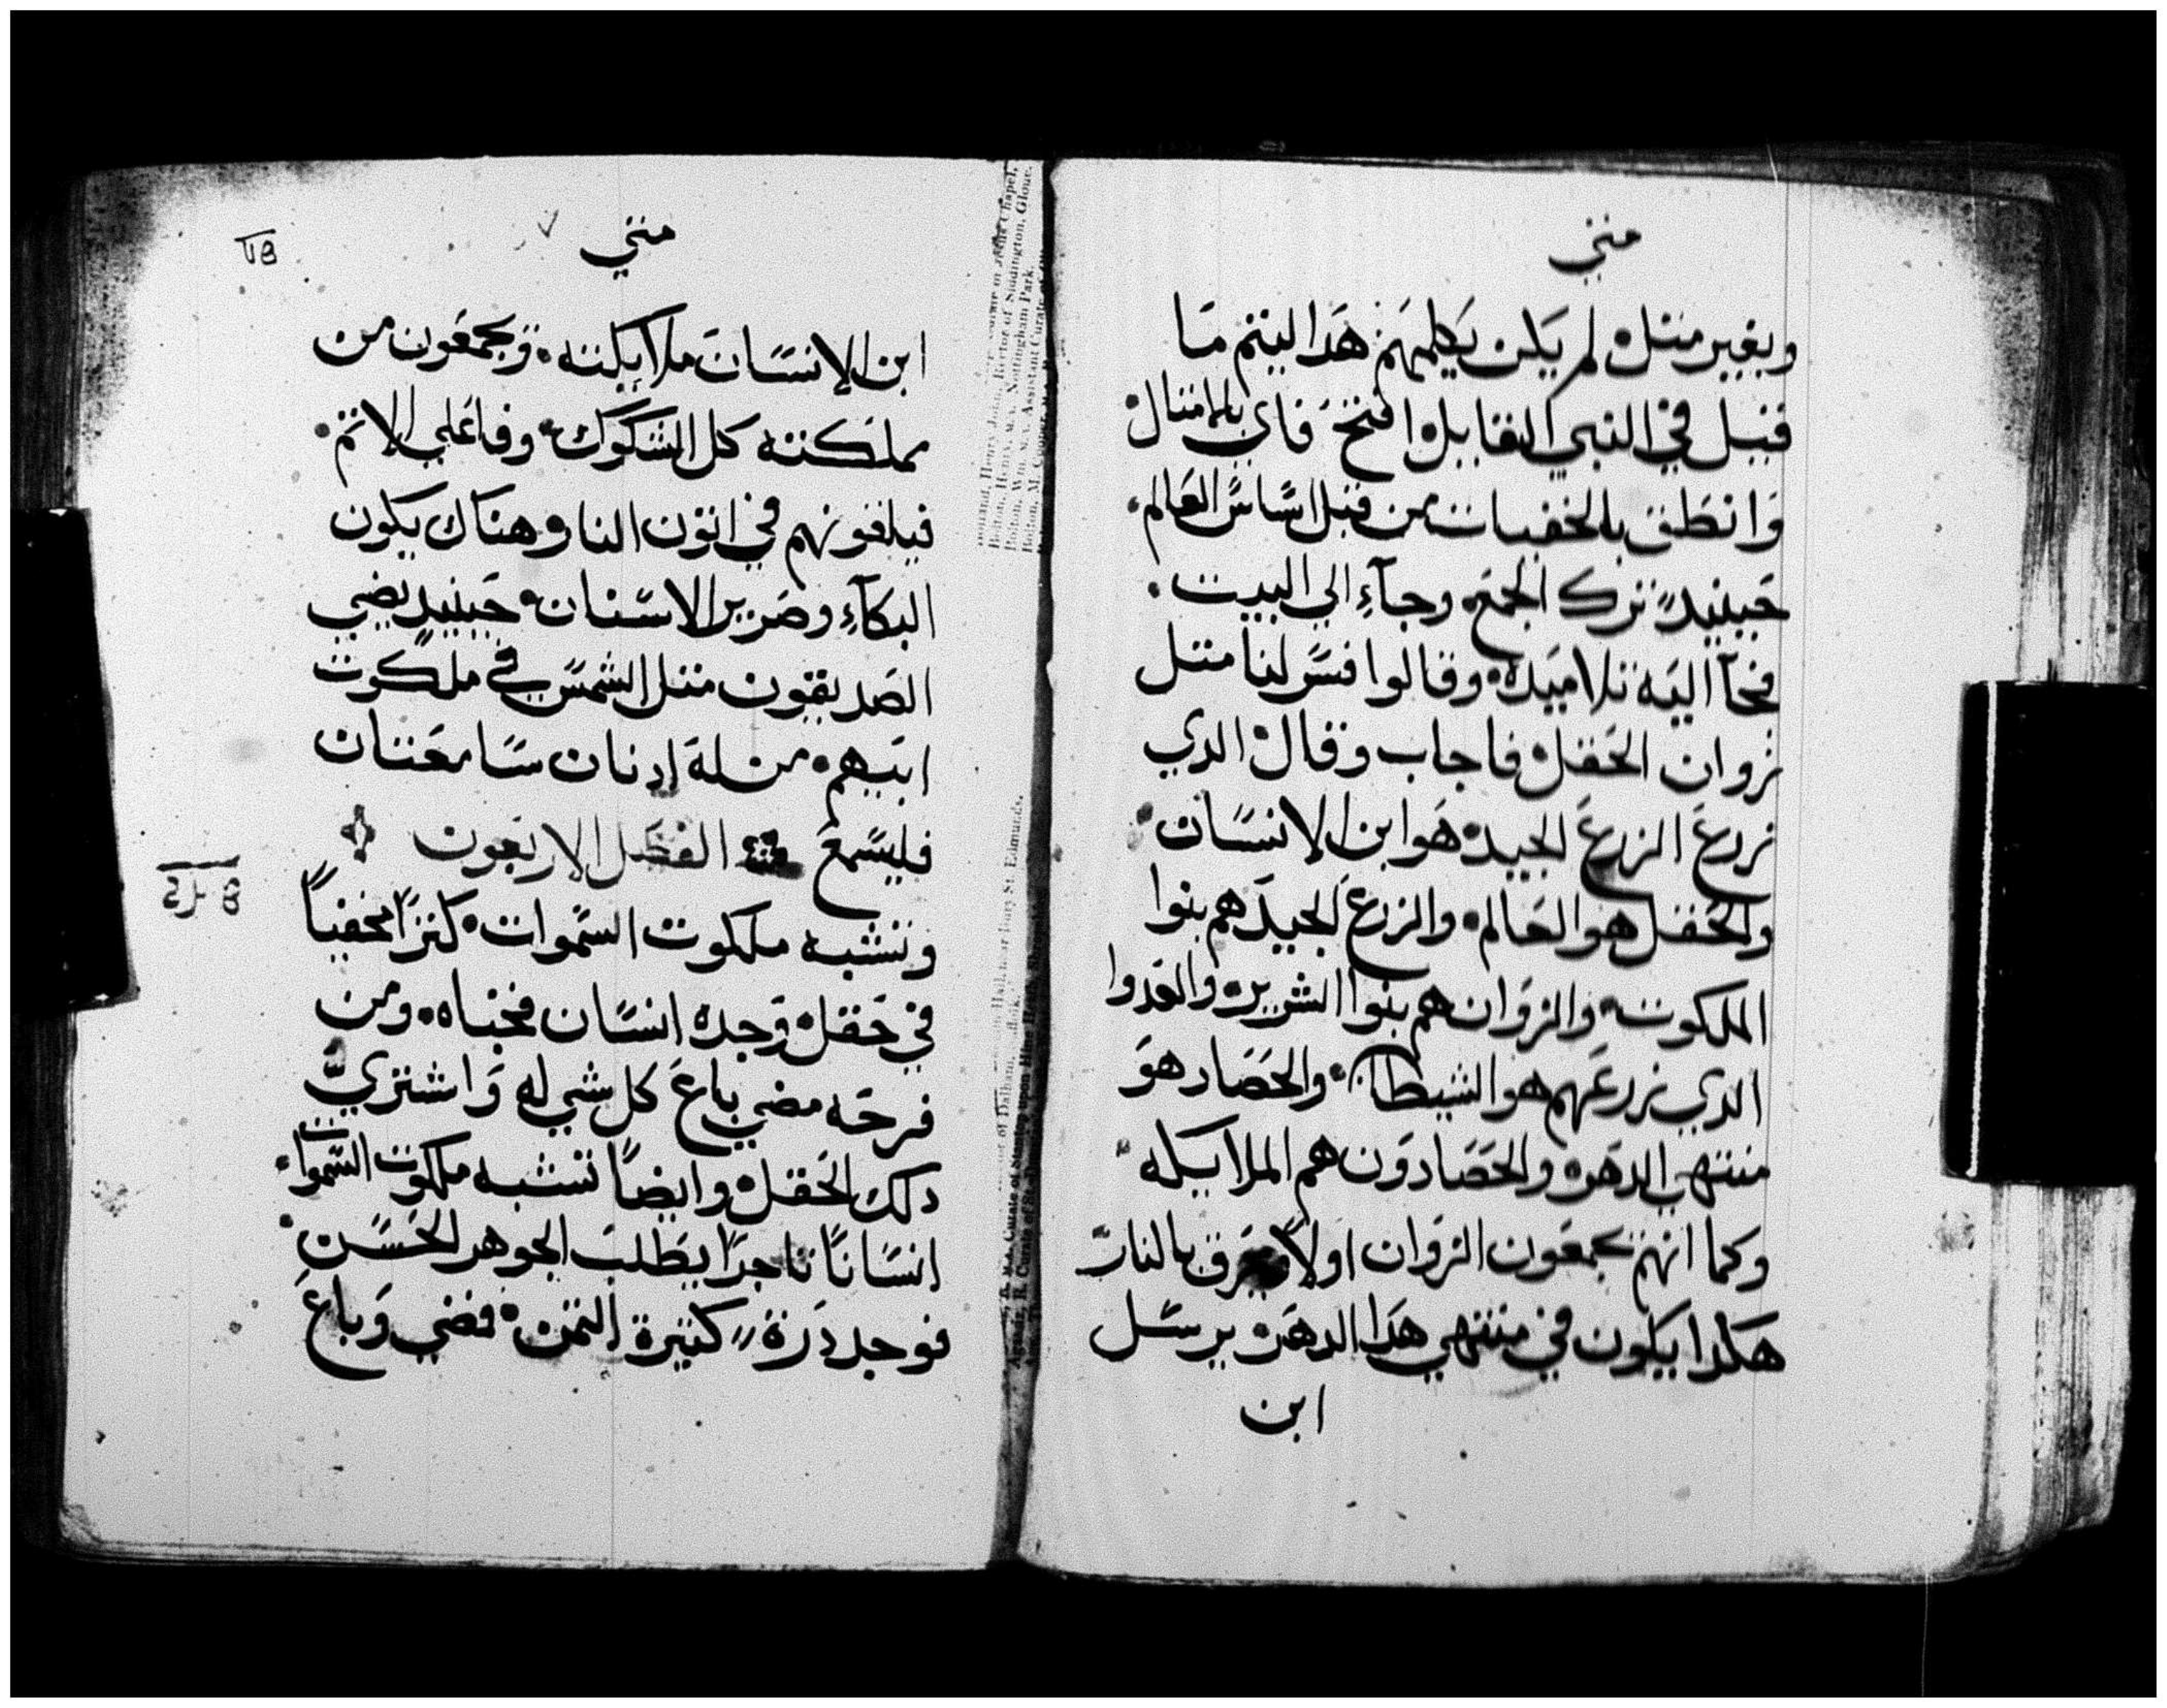 متي
وبغير متل لم يكن يكلمهم هدا ليتم ما
قيل في النبي القايل افتح فاي بالامتال
وانطق بالخفيات من قبل اساس العالم
حينيد ترك الجمع وجآء الي البيت
فجآ اليه تلاميده وقالوا فسر لنا متل
زوان الحقل فاجاب وقال الدي
زرع الزرع الجيد هو ابن الانسان
والحقل هو العالم والزرع الجيد هم بنوا
الملكوت والزوان هم بنوا الشرير والعدوا
الدي زرعهم هو الشيطان والحصاد هو
منتهي الدهر والحصادون هم الملايكه
وكما انهم يجمعون الزوان اولا بالنار
هكدا يكون في منتهي هدا الدهر يرسل
ابن
متي
ابن الانسان ملايكته ويجمعون من
مملكته كل الشكوك وفاعلي الاتم
فيلقونهم في اتون النار وهناك يكون
البكآء وصرير الاسنان حينيد يضي
الصديقون متل الشمس في ملكوت
ابيهم من له ادنان سامعتان
فليسمع الفصل الاربعون
وتشبه ملكوت السموات كنزا مخفيا
في حقل وجده انسان فخباه ومن
فرحه مضي باع كل شي له واشتري
دلك الحقل وايضا تشبه ملكوت السموات
انسانا تاجرا يطلب الجوهر الحسن
فوجد درة كتيرة التمن فمضي وباع